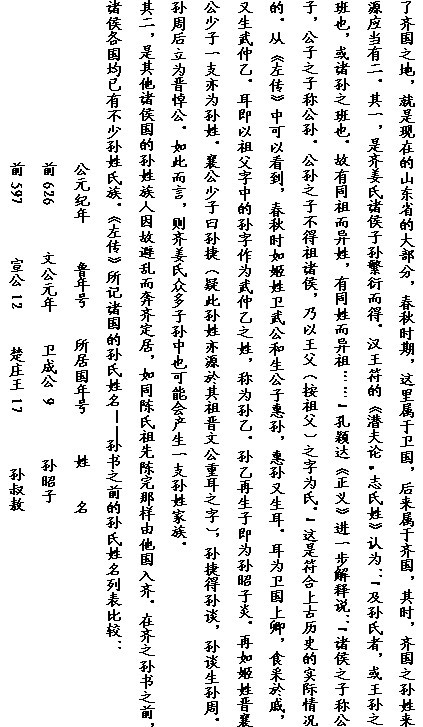 了齐国之地，就是现在的山东省的大部分，春秋时期，这里属于卫国，后来属于齐国，其时，齐国之孙姓来
源应当有二。其一，是齐姜氏诸侯子孙繁衍而得。汉王符的《潜夫论·志氏姓》认为：“及孙氏者，或王孙之
班也，或诸孙之班也。故有同祖而异姓，有同姓而异祖……”孔颖达《正义》进一步解释说：“诸侯之子称公
子，公子之子称公孙。公孙之子不得祖诸侯，乃以王父（按祖父）之字为氏。”这是符合上古历史的实际情况
的。从《左传》中可以看到，春秋时如姬姓卫武公和生公子惠孙，惠孙又生耳。耳为卫国上卿，食采於戚，
又生武仲乙。耳即以祖父字中的孙字作为武仲乙之姓，称为孙乙。孙乙再生子即为孙昭子炎。再如姬姓晋襄
公少子一支亦为孙姓。襄公少子曰孙捷（疑此孙姓亦源於其祖晋文公重耳之字），孙捷得孙谈，孙谈生孙周。
孙周后立为晋悼公。如此而言，则齐姜氏众多子孙中也可能会产生一支孙姓家族。
其二，是其他诸侯国的孙姓族人因故避乱而奔齐定居，如同陈氏祖先陈完那样由他国入齐。在齐之孙书之前，
诸侯各国均已有不少孙姓氏族。《左传》所记诸国的孙氏姓名——孙书之前的孙氏姓名列表比较：
公元纪年 鲁年号 所居国年号 姓 名
前 626 文公元年 卫成公 9 孙昭子
前 597 宣公 12 楚庄王 17 孙叔敖